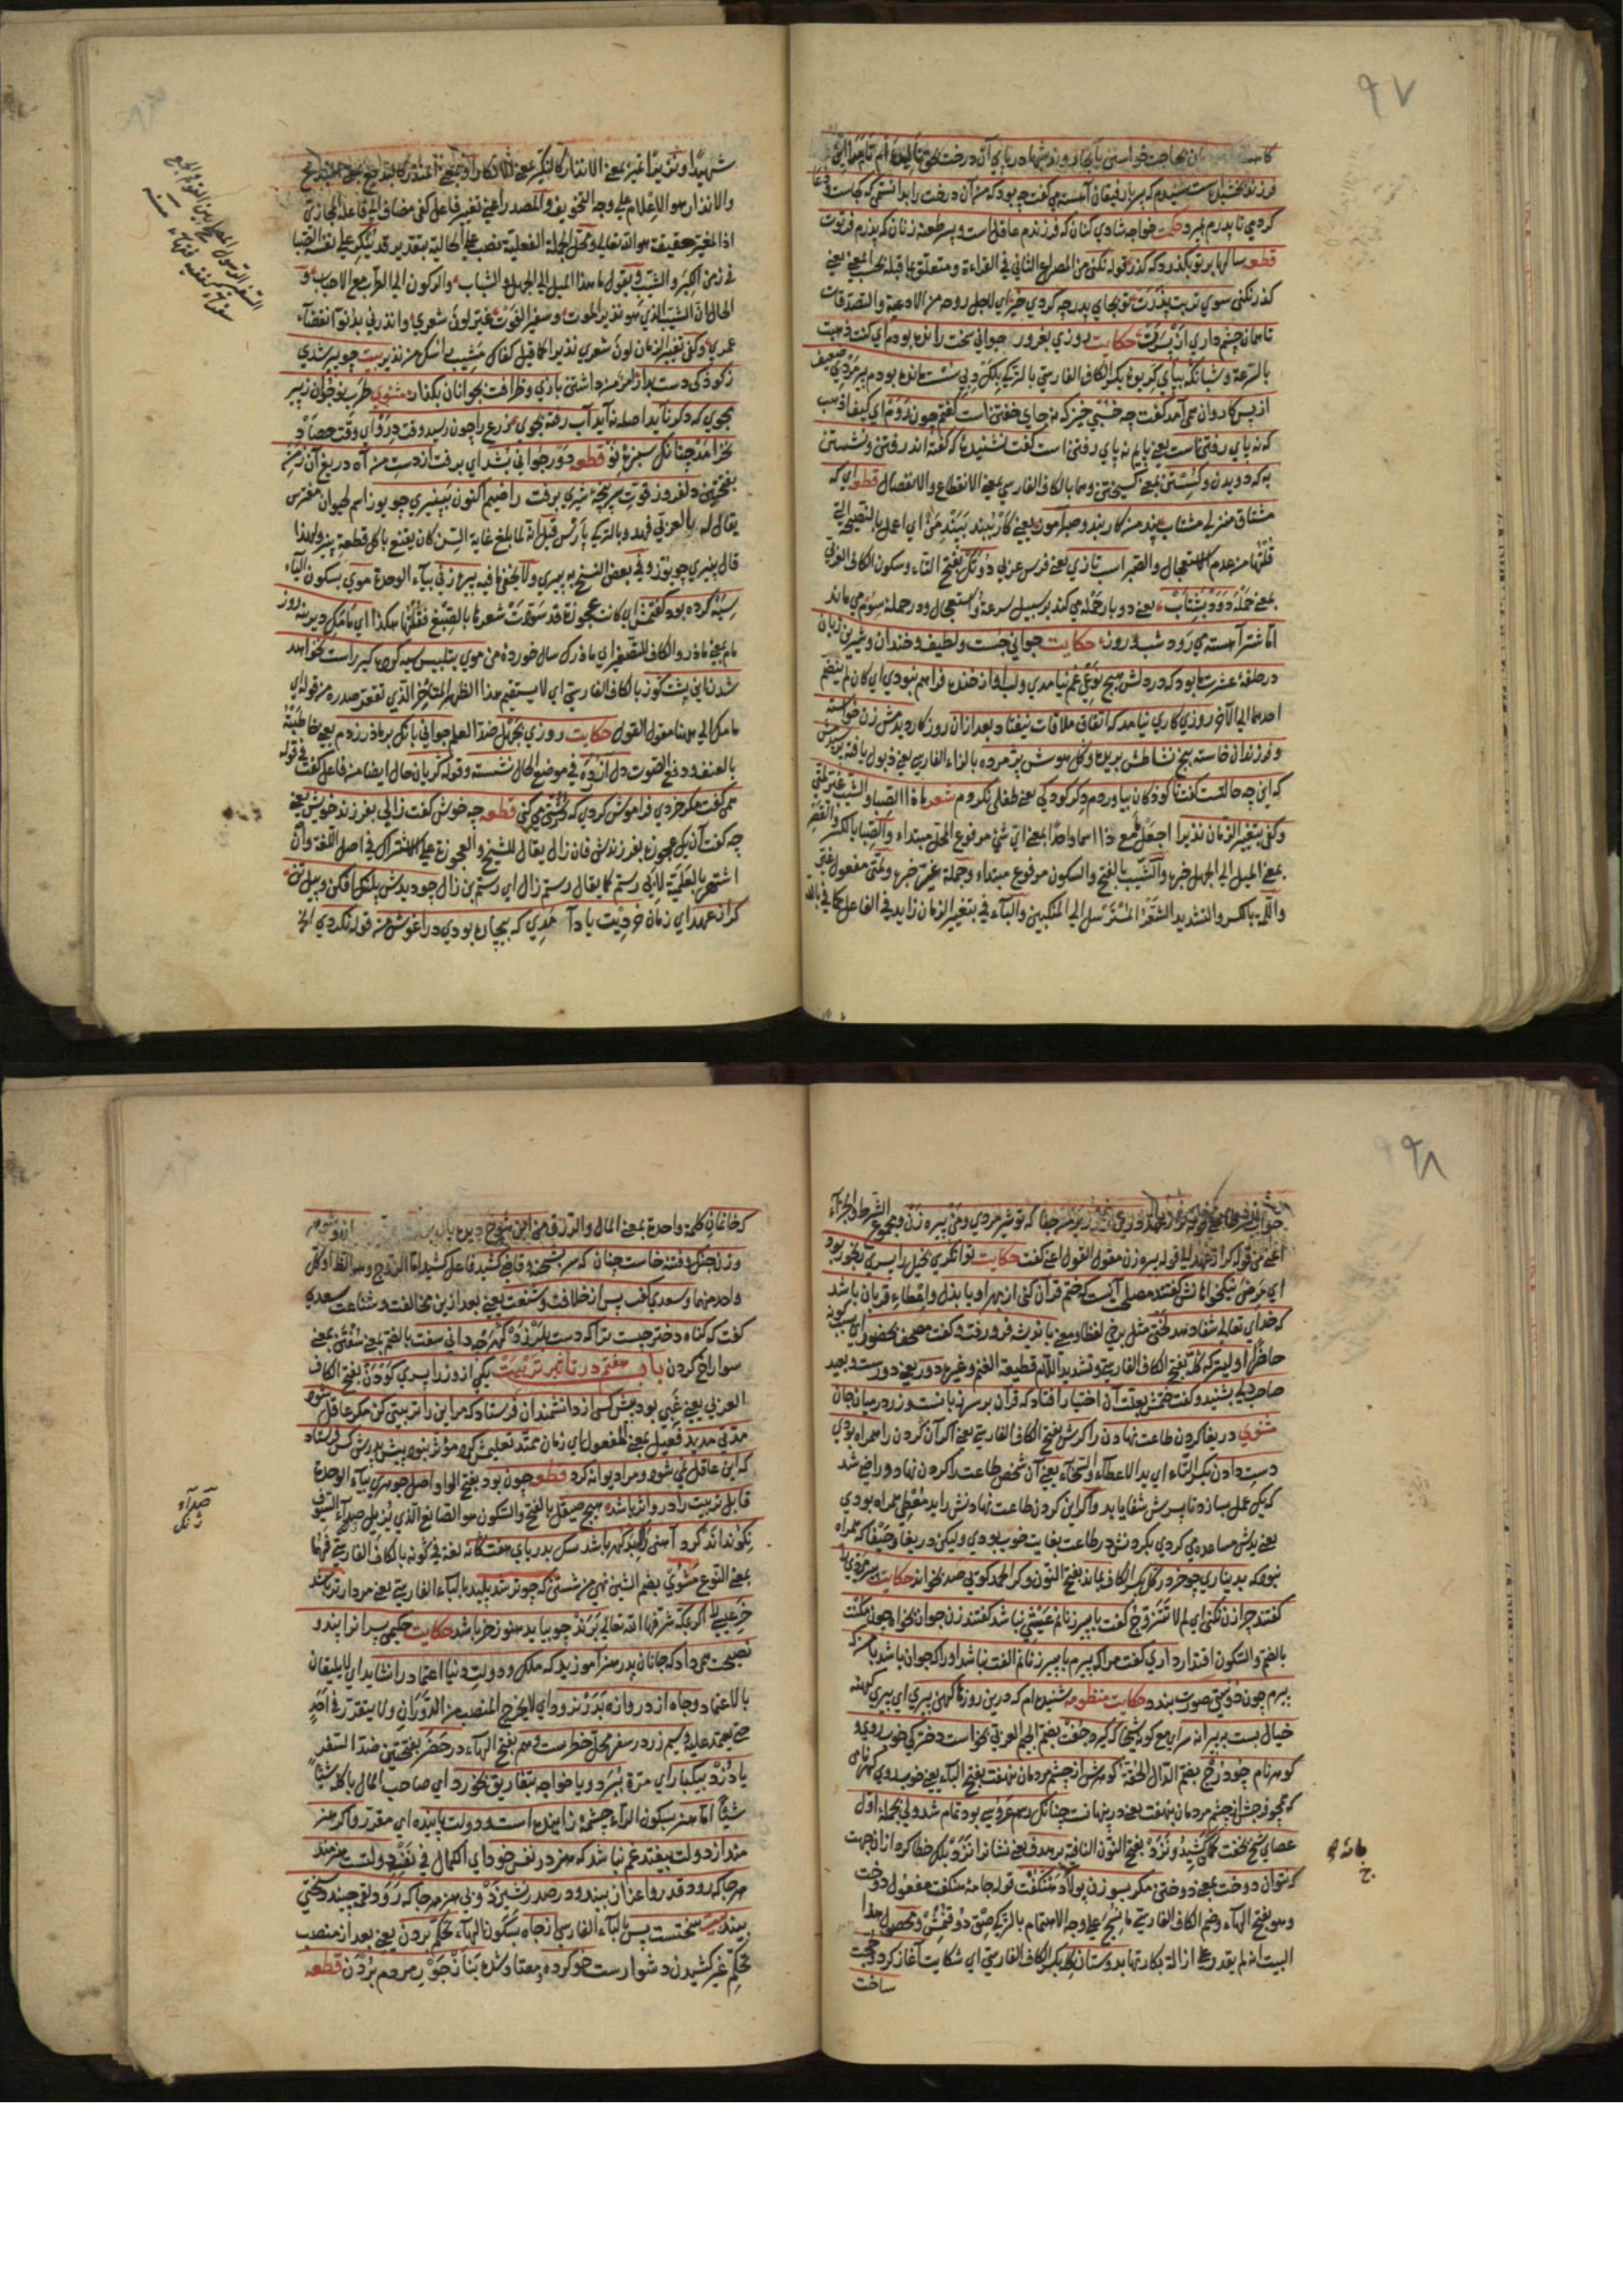 ٩٧
فرزند بخشیده است شنیدم که پسر با رفیقان آهسته می گفت چه بودی که من آن درخت را بدانستمی که کجاست و دعا
کردمی تا پدرم بمردی حکمت خواجه شادی کنان که فرزندم عاقل است و پسر طعنه زنان که پدرم فرتوت
قطعه سالها بر تو بگذرد که گذر قوله نکنی من المصراع الثانی فی القراءة و متعلق بما قبله بحسب المعنی یعنی
گذر نکنی سوی تربت پدرت تو بجای پدر چه کردی خیر ای لاجل روحه من الادعیة والتصدقات
تا همان چشم داری از پسرت حکایت روزی بغرور جوانی سخت رانده بودم ای کنت ذهبت
بالسرعة و شبانگه بپای کریوه بکسر الکاف الفارسی بالترکی سست مانده بودم پیر مردی ضعیف
از پس کاروان همی آمد گفت چه خسبی خیز که نه جای خفتن است گفتم چون روم ای کیف اذهب
که نه پای رفتن است یعنی پایم نه پای رفتن است گفت نشنیده که گفته اند رفتن و نشستن
به که دویدن و گسستن بمعنی گسیختن وهما بالکاف الفارسی بمعنی الانقطاع والانفصال قطعه ای که
مشتاق منزلی مشتاب پند من کار بند و صبر آموز یعنی کار ببند پند من ای اعمل بالنصیحة التی
قلتها من عدم الاستعجال والصبر اسب تازی یعنی فرس عربی دو تک بفتح التاء و سکون الکاف العربی
بمعنی حمله رود بشتاب یعنی دو بار حمله می کند بر سبیل سرعة واستعجال و در حمله سوم می ماند
اما شتر آهسته می رود شب و روز حکایت جوانی چست و لطیف و خندان و شیرین زبان
در حلقه عشرت ما بود که در دلش هیچ نوعی غم نیامدی و لب او از خنده فراهم نبودی ای کان لم ینضم
احدهما الی الآخر روزی کاری نیامد که اتفاق ملاقات نیفتاد بعد از آن روزگار دیدمش زن خواسته
و فرزندان خاسته بیخ نشاطش بریده و گل هوسش پژمرده بالزاء الفارسی یعنی ذبول یافته پرسیدمش
که این چه حالتست گفت تا کودکان بیاوردم دگر کودکی یعنی طفلی نکردم شعر ماذا الصبا والشیب غیر لمتی
وکفی بتغییر الزمان نذیرا اجعل مع ذا اسما واحدا بمعنی ای شئ مرفوع المحل مبتداء والصبا بالکسر والقصر
بمعنی المیل الی الجهل خبره والشیب بالفتح والسکون مرفوع مبتداء وجملة غیر خبره ولمتی مفعول غیر
واللمة بالکسر والتشدید الشعر المسترسل الی المنکبین والباء فی بتغییر الزمان زاید فی الفاعل کما فی بالله
شهیدا و نذیرا تمیز بمعنی الانذار کالنکیر بمعنی الانکار
والانذار هو الاعلام علی وجه التخویف والمصدر اعنی تغییر فاعل کفی مضاف الی فاعله المجازی
اذ المغیر حقیقة هو الله تعالی و محل الجملة الفعلیة نصب علی الحالیة بتقدیر قد ینکر علی نفسه الصبا
فی زمن الکبر والشیب ویقول ما هذا المیل الی الجهل والشباب والرکون الی الطرب مع الاحباب و
الحال ان الشیب الذی هو نذیر الموت و سفیر الفوت غیر لون شعری وانذرنی بدنو انقضاء
عمری وکفی تغییر الزمان لون شعری نذیرا کما قیل کفاک مشیب راسک من نذیر بیت چو پیر شدی
ز کودکی دست بدار لهو من داشتن بازی و ظرافت بجوانان بگذار مثنوی طرب نوجوان ز پیر
مجوی که دگر ناید اصله نه آید آب رفته بجوی زرع را چون رسید وقت درو ای وقت حصاد
نخرامد چنانکه سبزه نو قطعه دور جوانی بشد ای برفت از دست من آه دریغ آن زمن
بفتحتین دلفروز قوت سرپنجه شیری برفت راضیم اکنون به پنیری چو یوز اسم لحیوان مفترس
یقال له بالعربی فهد و بالترکی پارس قیل انه لما بلغ غایة السن کان یقنع باکل قطعة پنیر ولهذا
قال پنیری چو یوز وفی بعض النسخ به پیری ولا یخفی ما فیه پیر زنی بیاء الوحدة موی بسکون الیاء
سیه کرده بود گفتمش ای کانت عجوزة قد سودت شعرها بالصبغ فقلت لها هکذا ای مامک دیرینه روز
مام بمعنی مادر والکاف للتصغیر ای مادرک سال خورده من موی بتلبیس سیه کرده گیر راست نخواهد
شدن این پشت کوز بالکاف الفارسی ای لا یستقیم هذا الظهر المتأخر الذی تقعر صدره من قوله ای
مامک الی ههنا مقول القول حکایت روزی بجهل ضد العلم جوانی بانگ بر مادر زدم یعنی خاطبته
بالعنف و رفع الصوت دل آزرده فی موضع الحال نشسته و قوله گریان حال ایضا من فاعل گفت فی قوله
همی گفت مگر خردی فراموش کردی که درشتی می کنی قطعه چه خوش گفت زالی بفرزند خویش یعنی
چه گفت آن یک عجوزه بفرزندش فان زال یقال للشیخ والعجوزة علی الاشتراک فی اصل اللغة وان
اشتهر بالعلمیة لابی رستم کما یقال رستم زال ای رستم بن زال چو دیدش پلنگ افکن و پیل تن
گر از عهد ای زمان خردیت یاد آمدی که بیچاره بودی در آغوش من قوله نکردی الخ
٩٨
اعنی من قوله گر از عهد الی قوله پیره زن مقول القول اعنی گفت حکایت توانگری بخیل را پسری رنجور بود
ای مرض نیکخواهانش گفتند مصلحت آنست که ختم قرآن کنی از بهر او یا بذل واعطاء قربان باشد
که خدای تعالی شفا دهد لختی مثل برخی لفظا و معنی باندیشه فرو رفت و گفت مصحف بحضور ای بسبب کونه
حاضرا اولیتر که گله بفتح الکاف الفارسی و تشدید اللام قطیعة الغنم وغیره دور یعنی دورست و بعید
صاحبدلی بشنید و گفت ختمش بعلت آن اختیار افتاد که قرآن بر سر زبانست و زر در میان جان
مثنوی دریغا گردن طاعت نهادن گرش بفتح الکاف الفارسی یعنی اگر آن گردن را همراه بودی
دست دادن بکسر التاء ای ید الاعطاء والسخاء یعنی آن شخص طاعت را گردن نهاد و راضی شد
که یک عمل بسازد تا پسرش شفا یابد واگر این گردن طاعت نهادنش را ید معطی همراه بودی
یعنی یدش مساعده می کردی بکردنش در طاعت بغایت خوب بودی ولیکن دریغا و حیفا که همراه
نبود که بدیناری چو خر در گل بکسر الکاف بماند بفتح النون وگر الحمد گویی صد بخواند حکایت پیر مردی را
گفتند چرا زن نکنی ای لم لا تتزوج گفت با پیر زنانم عیشی نباشد گفتند زن جوان بخواه چون مکنت
بالضم والسکون اقتدار داری گفت مرا که پیرم با پیر زنانم الفت نباشد او را که جوان باشد با من که
پیرم چون دوستی صورت بندد حکایت منظومه شنیده ام که درین روزها کهن پیری ای پیری کهنه
خیال بست به پیرانه سر ای مع کونه شیخا که گیرد جفت بضم الجیم العربی بخواست دخترکی خوب روی و
گوهر نام چو درج بضم الدال الحقه گوهرش از چشم مردمان بنهفت بفتح الباء یعنی خوب روی گوهر نامی
که همچو درجش از چشم مردمان بنهفت یعنی در نهانست چنانکه رسم عروسی بود تمام شد ولی بحمله اول
عصای شیخ بخفت کمان کشید و نزد بفتح النون النافیه بر هدف یعنی نشانرا نزد بلکه خطا کرد از آن جهت
که نتوان دوخت بمعنی دوختن مگر بسوزن پولاد هنگفت قوله جامه هنگفت مفعول دوخت
وهو بفتح الهاء وضم الکاف الفارسی ما نسج علی وجه الاهتمام بالترکی صق دوقنمش ومحصول هذا
البیت انه لم یقدر علی ازالة بکارتها بدوستان گله بکسر الکاف الفارسی ای شکایت آغاز کرد و حجت
ساخت
که خانمان کلمة واحدة بمعنی المال والرزق من این شوخ دیده پاک برفت
و زن جنگ و فتنه خاست چنان که سر بشحنه و قاضی کشید فاعل کشید اما الزوج وهو الظ او کل
واحد منهما و سعدی گفت پس از خلافت و شنعت یعنی بعد ازین مخالفت و شناعت سعدی
گفت که گناه دختر چیست ترا که دست بلرزد گهر چه دانی سفت بالضم بمعنی سفتن بمعنی
سوراخ کردن باب هفتم در تأثیر تربیت یکی از وزرا پسری کودن بفتح الکاف
العربی یعنی غبی بود پیش کسی از دانشمندان فرستاد که مر این را تربیتی کن مگر عاقل شود
مدتی مدید فعیل بمعنی المفعول ای زمان ممتد تعلیمش کرد مؤثر نبود پیش پدرش کس فرستاد
که این عاقل نمی شود و مرا دیوانه کرد قطعه چون بود بفتح الواو اصل جوهری بیاء الوحدة
قابل تربیت را درو اثر باشد هیچ صیقل بالفتح والسکون هو الصانع الذی یزیل صداء السیوف
نکو نداند کرد آهنی را که بد گهر باشد سگ بدریای هفت گانه لغة فی گونه بالکاف الفارسی فیهما
بمعنی النوع مشوی بضم الشین نهی من شستن که چو تر شد پلیدتر بالباء الفارسی یعنی مردارتر باشد
خر عیسی اگر بمکه شرفها الله تعالی برند چو بیاید هنوز خر باشد حکایت حکیمی پسرانرا پند و
نصیحت همی داد که جانان پدر هنر آموزید که ملک و دولت دنیا اعتماد را نشاید ای لا یلیقان
بالاعتماد و جاه از دروازه بدر نرود ای لا یخرج المنصب من الدوران ولا یتقرر فی احد
حتی یعتمد علیه و سیم زر در سفر محل خطرست وهم بفتح الهاء در حضر بفتحتین ضد السفر
یا دزد بیکبار ای مرة ببرد و یا خواجه بتفاریق بخورد ای صاحب المال یاکله شیئا
شیئا اما هنر بسکون الراء چشمه زاینده است و دولت پاینده ای مقرر و اگر هنر
مند از دولت بیفتد غم نباشد که هنر در نفس خود ای الکمال فی نفسه دولتست هنرمند
هر جا که رود قدر و اعزاز ببیند و در صدر نشیند و بی هنر هر جا که رود لقمه چیند و سختی
بیند بیت سختست پس بالباء الفارسی از جاه بسکون الهاء تحکم بردن یعنی بعد از منصب
تحکم غیر کشیدن دشوار است خو کرده و معتاد شده بناز جور مردم بردن قطعه
صداء
ژنگ